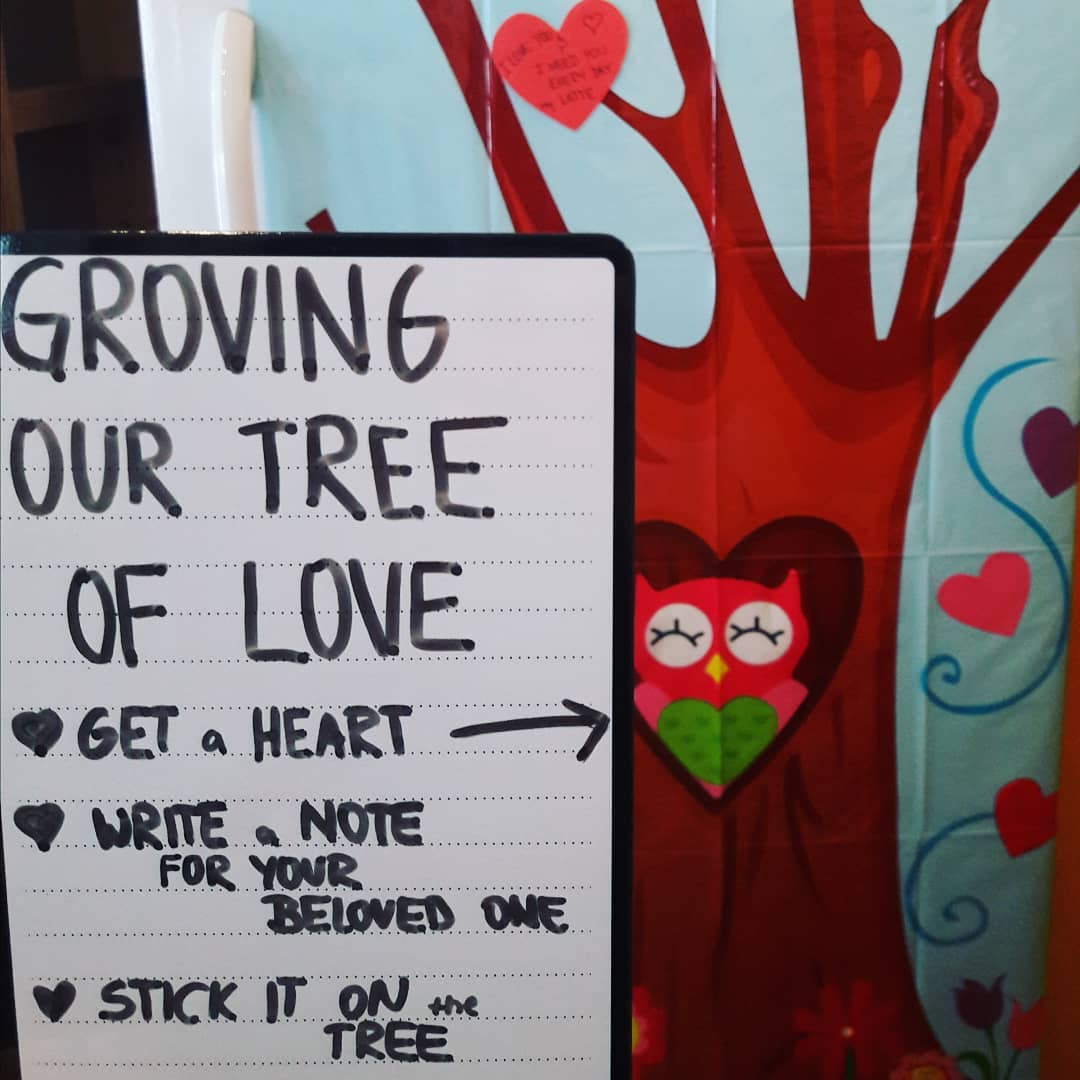 I LOVE YOU
I NEED YOU
EVERY DAY
MY LATTE
GROVING
OUR TREE
OF LOVE
GET a HEART
WRITE a NOTE
FOR YOUR
BELOVED ONE
STICK IT ON the
TREE